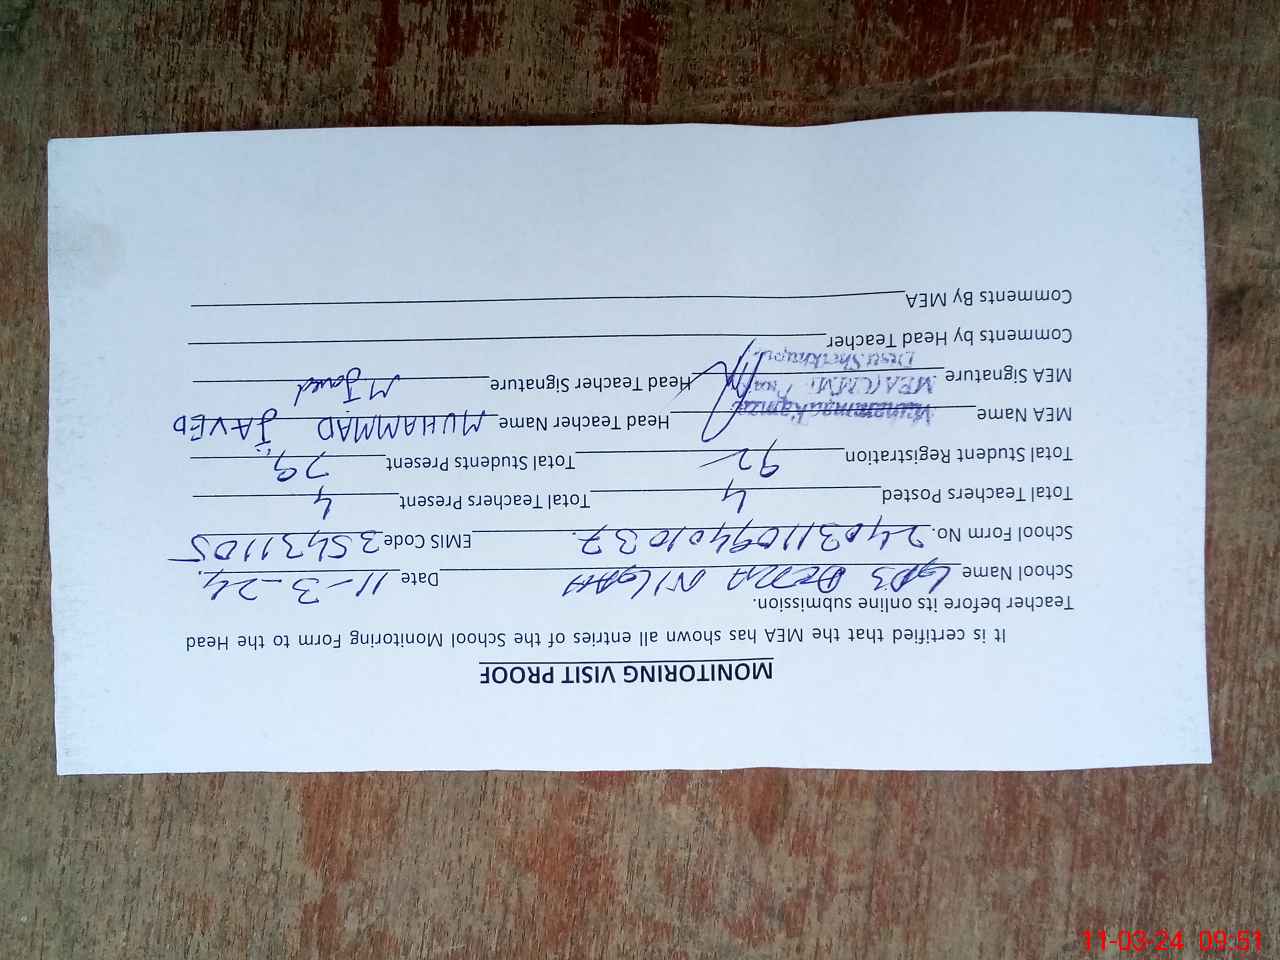 MONITORING VISIT PROOF
It is certified that the MEA has shown all entries of the School Monitoring Form to the Head
Teacher before its online submission.
School Name GPS DERA NILGAH Date 11-3-24.
School Form No. 24031109401037. EMIS Code 35431105
Total Teachers Posted 4 Total Teachers Present 4
Total Student Registration 92 Total Students Present 79
MEA Name Muhammad Head Teacher Name MUHAMMAD JAVED
MEA Signature MEA (CMM) Head Teacher Signature M Javed
Distt. Sheikhupura
Comments by Head Teacher
Comments By MEA
11-03-24 09:51